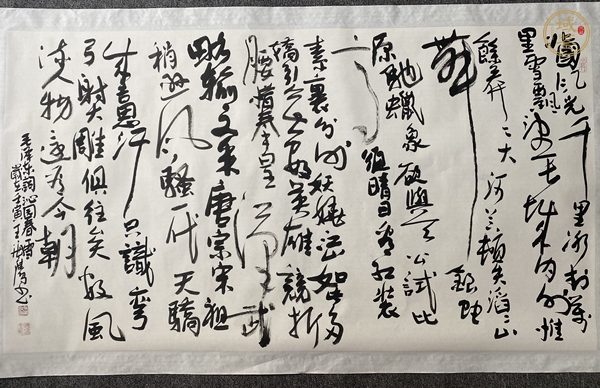 北国风光千里冰封萬
里雪飘望长城内外惟
餘莽莽大河上下頓失滔滔山
舞銀蛇
原馳蠟象欲與天公試比
高須晴日看红装
素裹分外妖娆江山如此多
嬌引無数英雄競折
腰惜秦皇漢武
略输文采唐宗宋祖
稍遜风騷一代天驕
成吉思汗只識彎
弓射雕俱往矣数風
流人物還看今朝
毛泽东詞沁园春雪
歲在壬寅王书